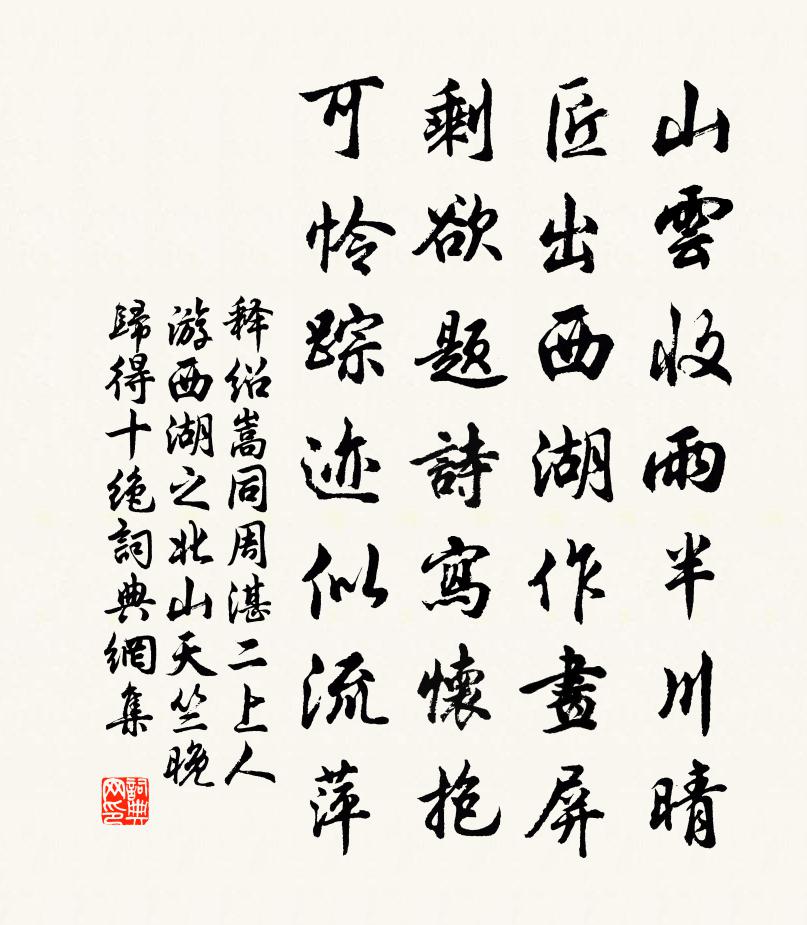 山雲收雨半川晴
匠出西湖作畫屏
剩欲題詩寫懷抱
可怜踪迹似流萍
释紹嵩同周湛二上人
游西湖之北山天竺晚
歸得十绝詞典網集
詞典网印